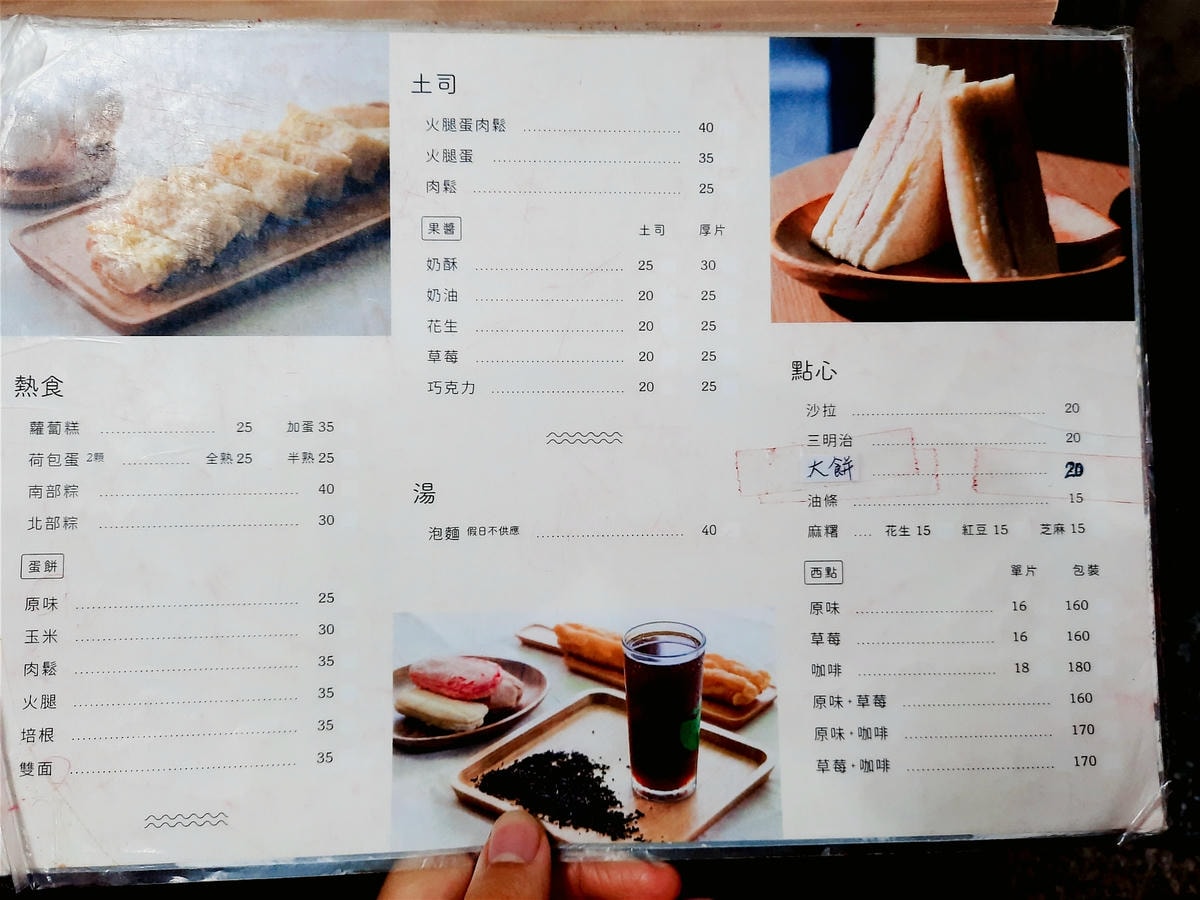 熱食
蘿蔔糕 25 加蛋 35
荷包蛋 2顆 全熟 25 半熟 25
南部粽 40
北部粽 30
蛋餅
原味 25
玉米 30
肉鬆 35
火腿 35
培根 35
雙面 35
土司
火腿蛋肉鬆 40
火腿蛋 35
肉鬆 25
果醬 土司 厚片
奶酥 25 30
奶油 20 25
花生 20 25
草莓 20 25
巧克力 20 25
湯
泡麵 假日不供應 40
點心
沙拉 20
三明治 20
大餅 20
油條 15
麻糬 花生 15 紅豆 15 芝麻 15
西點 單片 包裝
原味 16 160
草莓 16 160
咖啡 18 180
原味+草莓 160
原味+咖啡 170
草莓+咖啡 170